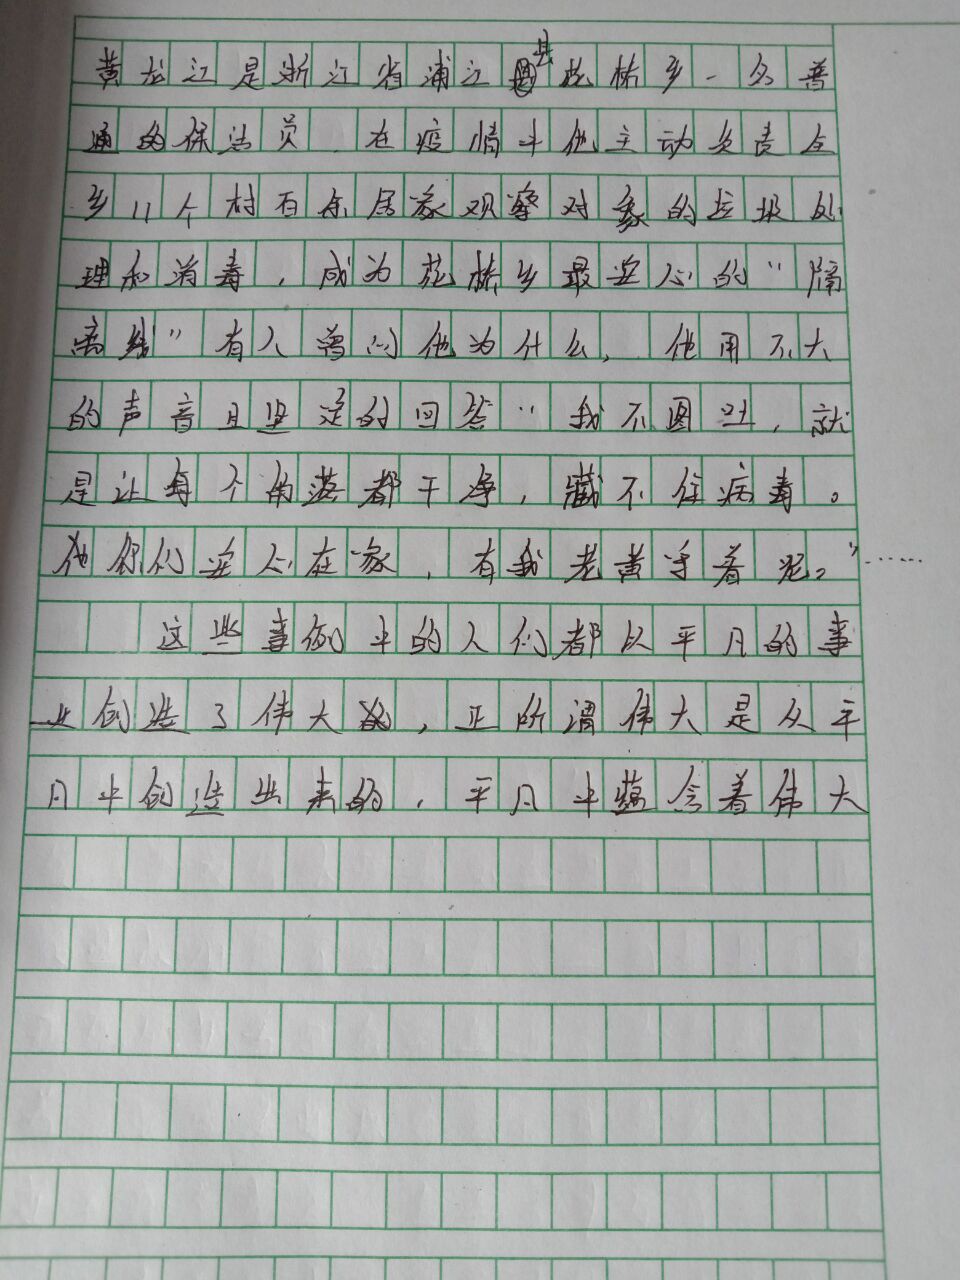 黄龙江是浙江省浦江县花桥乡一名普
通的保洁员,在疫情中他主动负责全
乡11个村百余居家观察对象的垃圾处
理和消毒,成为花桥乡最安心的“隔
离线”有人曾问他为什么,他用不大
的声音且坚定的回答“我不图啥,就
是让每个角落都干净,藏不住病毒。
他你们安心在家,有我老黄守着呢。”……
这些事例中的人们都以平凡的事
业创造了伟大,正所谓伟大是从平
凡中创造出来的,平凡中蕴含着伟大